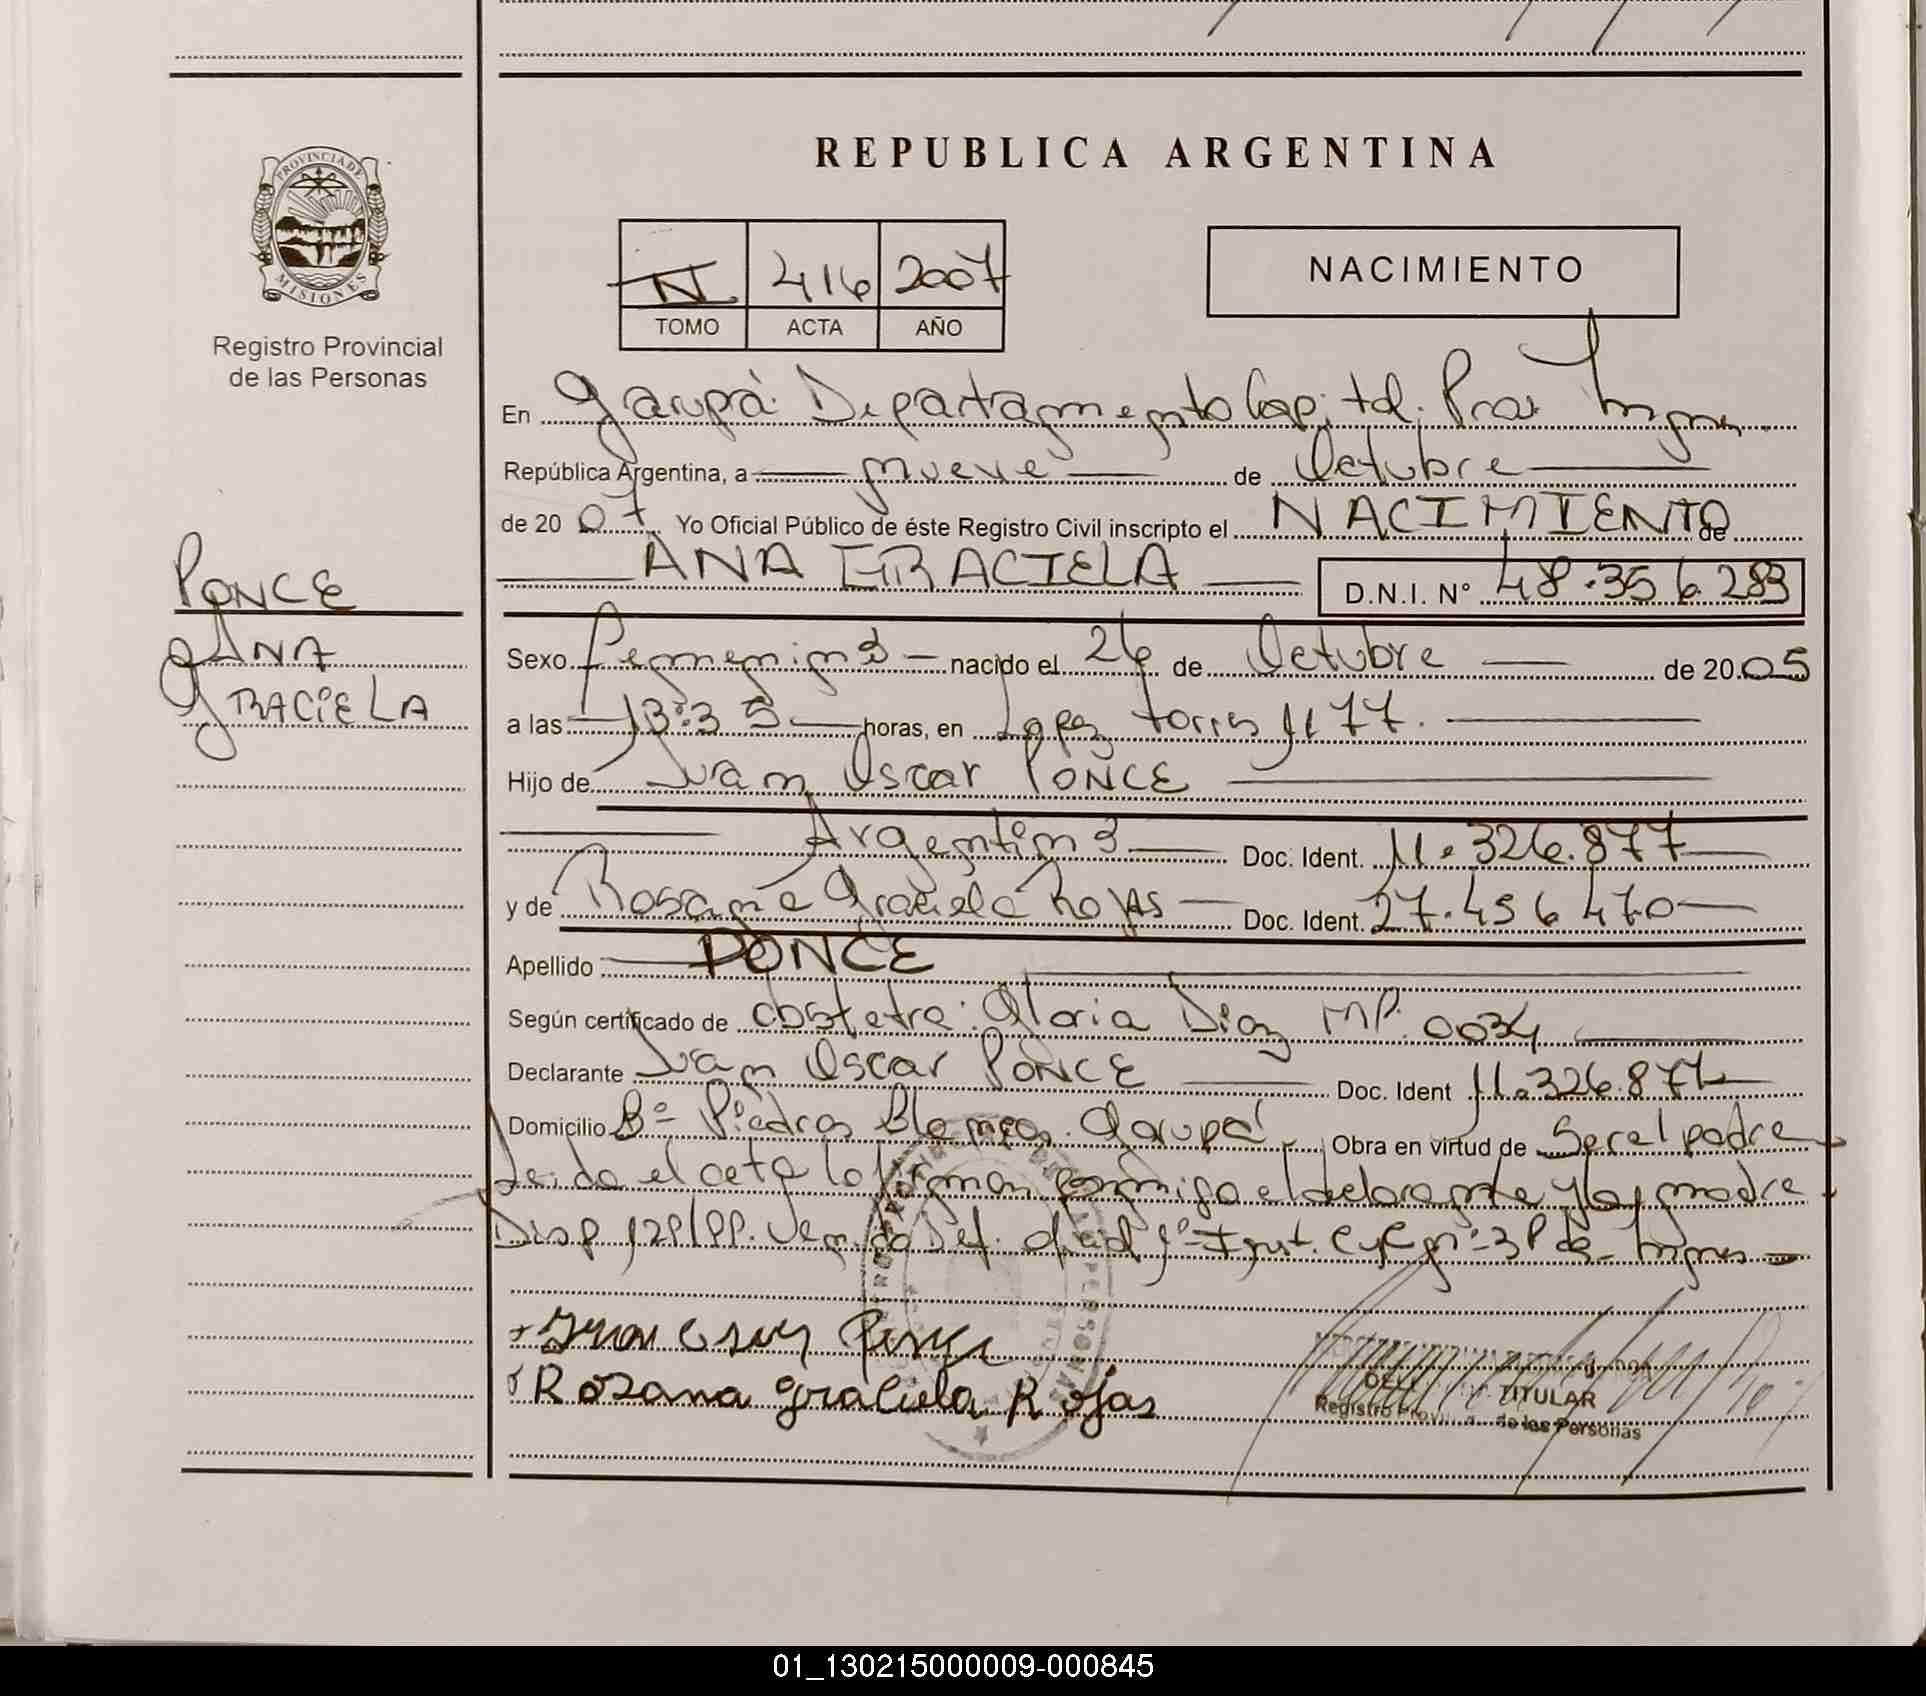 REPUBLICA ARGENTINA
PROVINCIA DE
MISIONES
Registro Provincial
de las Personas
416 2007
TOMO ACTA AÑO
NACIMIENTO
En Garupá Departamento Capital. Pcia. Mnes
República Argentina, a nueve de Octubre
de 20 07 Yo Oficial Público de éste Registro Civil inscripto el NACIMIENTO de
ANA GRACIELA D.N.I. N° 48.356.283
PONCE
ANA
GRACIELA
Sexo Femenino nacido el 26 de Octubre de 20 05
a las 13:35 horas, en Lopez Torres 1177.
Hijo de Juan Oscar PONCE
Argentino Doc. Ident. 11.326.877
y de Rosana Graciela Rojas Doc. Ident. 27.456 470
Apellido PONCE
Según certificado de obstetra: Gloria Diaz MP. 0034
Declarante Juan Oscar PONCE Doc. Ident 11.326.877
Domicilio B° Piedras Blancas. Garupá Obra en virtud de Ser el padre
Leida el acta la firman conmigo el declarante y la madre
Disp 128/99. Def. Oficial 1° Inst. C y C n° 3 Pdas Mnes
Juan Oscar Ponce
Rozana graciela Rojas
TITULAR
Registro de las Personas
01_130215000009-000845